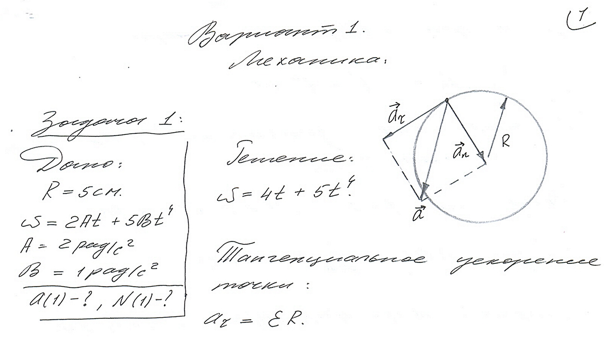 1
Вариант 1.
Механика.
Задача 1:
Дано:
R = 5 см.
ω = 2At + 5Bt⁴
A = 2 рад/с²
B = 1 рад/с²
a(1)-?, N(1)-?
Решение:
ω = 4t + 5t⁴.
Тангенциальное ускорение
точки:
a_τ = εR.
a⃗_τ
a⃗_n
R
a⃗